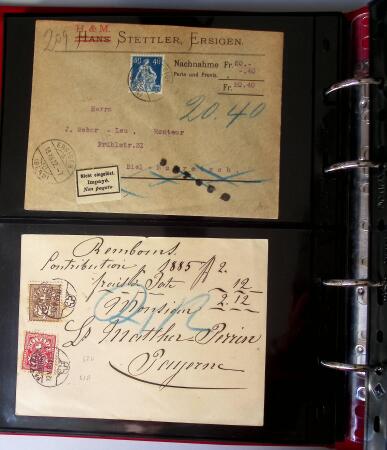 209
H. & M.
Hans Stettler, Ersigen.
Nachnahme Fr. 20.-
Porto und Provis. -.40
Fr. 20.40
40 40
20.40
Herrn
J. Weber - Leu, Monteur
Frühlstr. 21
Biel-
ERSIGEN
Nicht eingelöst.
Impayé.
Non pagato.
Rembours.
Contribution 1885 f 2.
12
2.12
Monsieur
Ls Matthey Perrin
Payerne